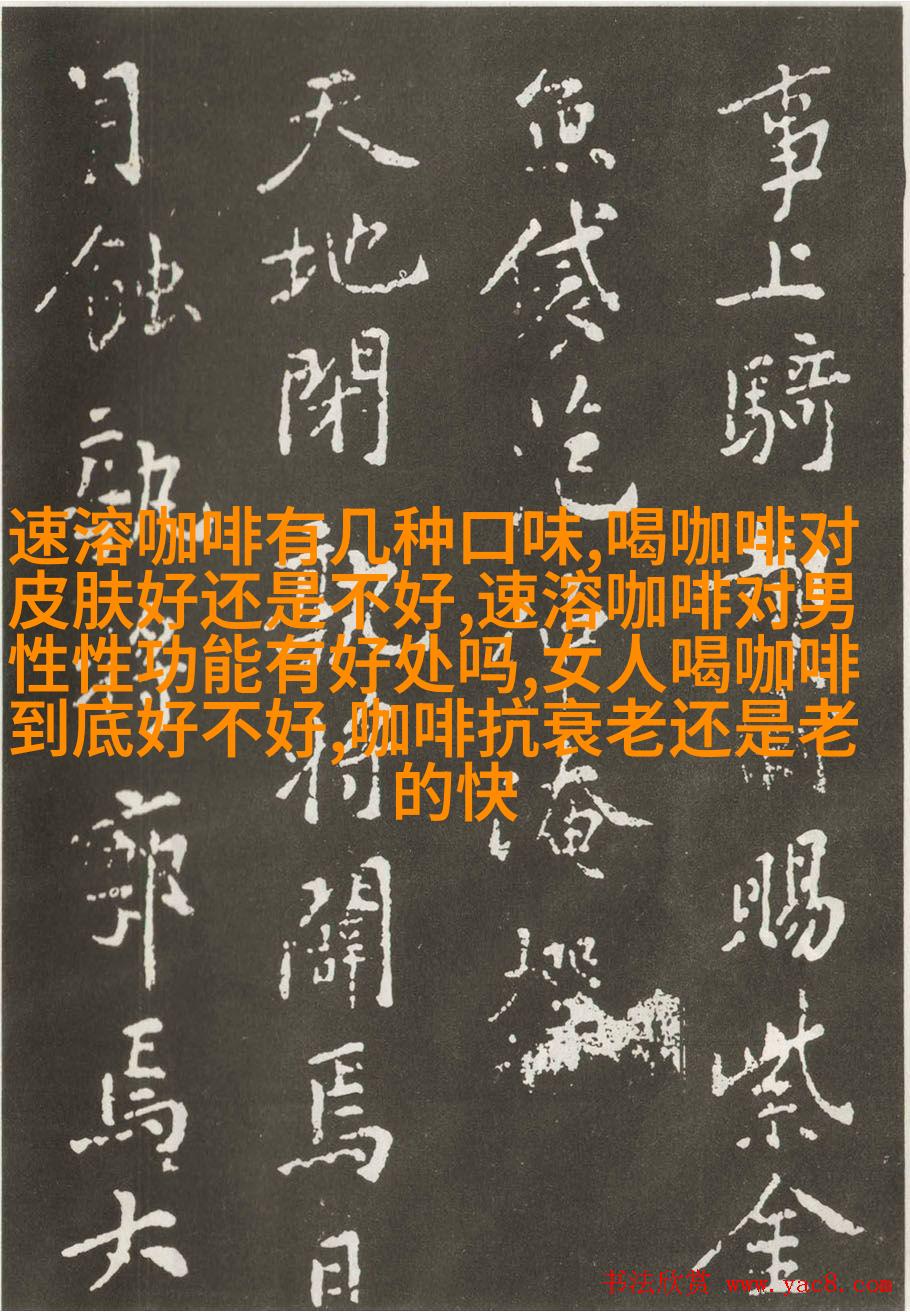 事上騎都尉賜紫金
魚袋范仲淹撰
天地閉孰將闢焉日
月蝕孰將廓焉大
速溶咖啡有几种口味,喝咖啡对
皮肤好还是不好,速溶咖啡对男
性性功能有好处吗,女人喝咖啡
到底好不好,咖啡抗衰老还是老
的快
书法欣赏 www.yac8.com